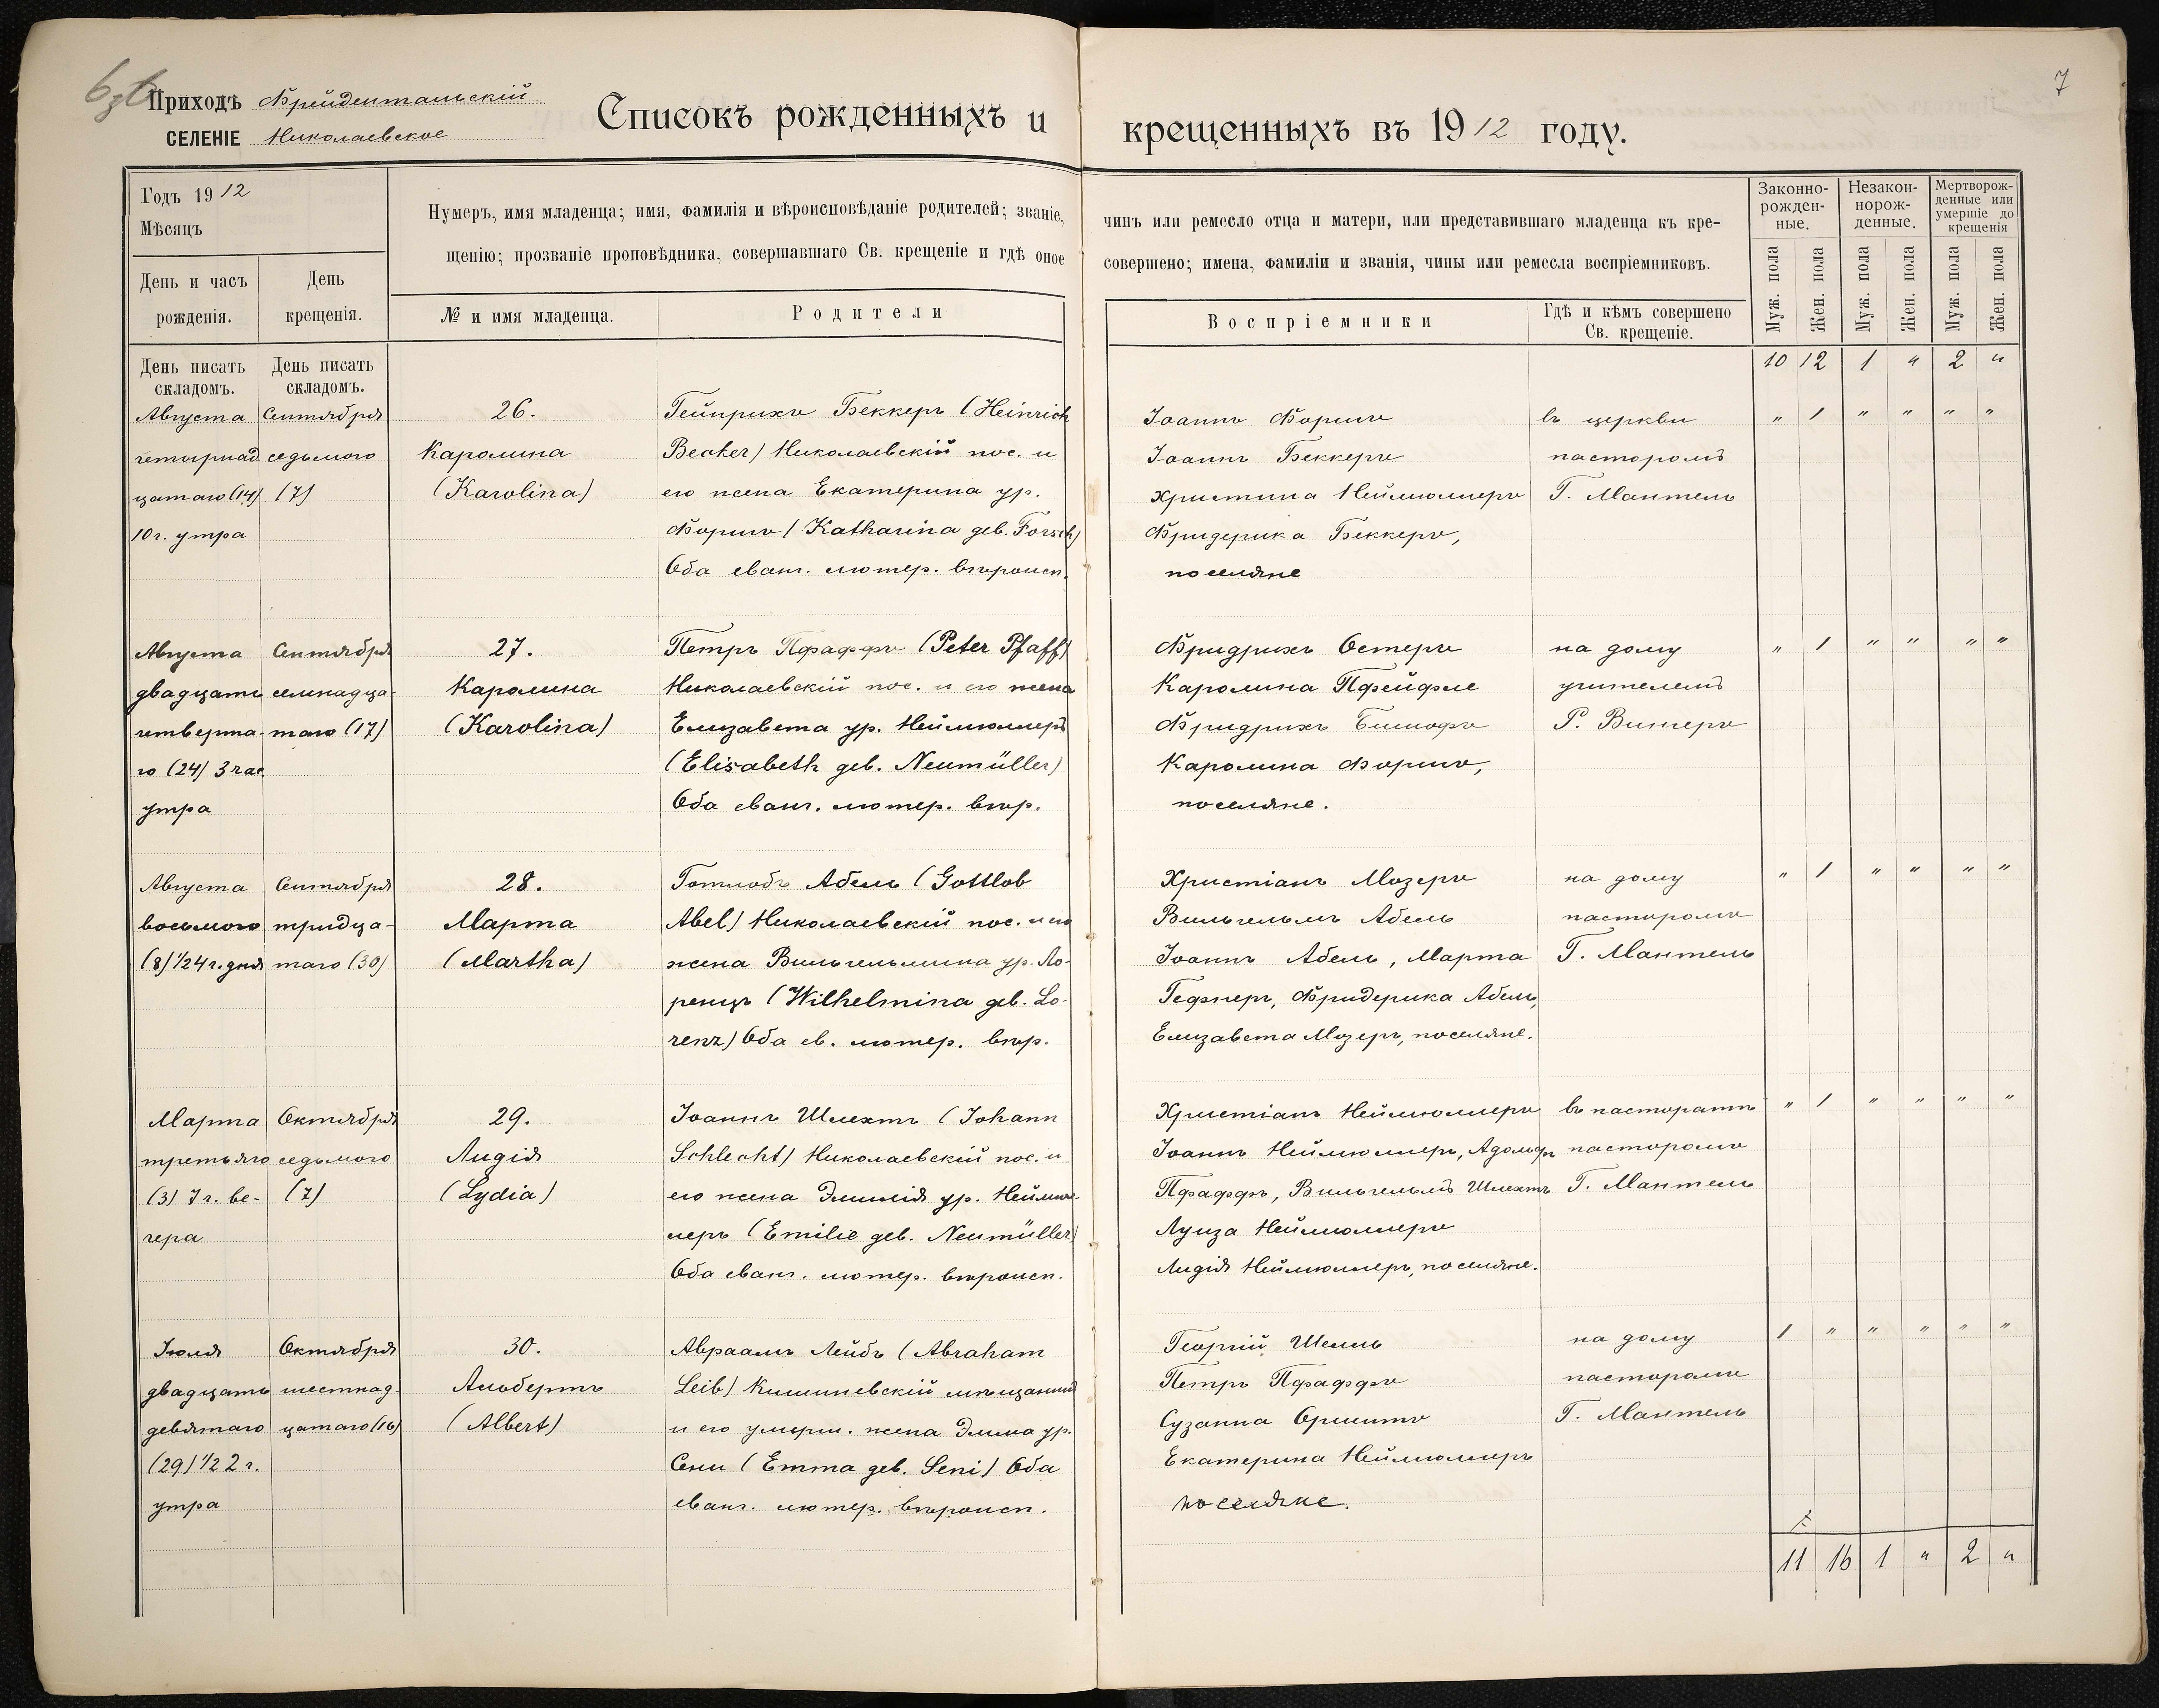 7
Приходъ Фрейдентальскій
СЕЛЕНІЕ Николаевское
Списокъ рожденныхъ и крещенныхъ въ 1912 году.
Годъ 1912
Мѣсяцъ
День и часъ рожденія.
День крещенія.
Нумеръ, имя младенца; имя, фамилія и вѣроисповѣданіе родителей; званіе, чинъ или ремесло отца и матери, или представившаго младенца къ кре-
щенію; прозваніе проповѣдника, совершавшаго Св. крещеніе и гдѣ оное совершено; имена, фамиліи и званія, чины или ремесла воспріемниковъ.
№ и имя младенца.
Родители
Воспріемники
Гдѣ и кѣмъ совершено
Св. крещеніе.
Законно-
рожден-
ные.
Незакон-
норож-
денные.
Мертворож-
денные или
умершіе до
крещенія
Муж. пола
Жен. пола
Муж. пола
Жен. пола
Муж. пола
Жен. пола
День писать
складомъ.
День писать
складомъ.
10 12 1 " 2 "
Августа
четырнад
цатаго (14)
10 ч. утра
Сентября
седьмого
(7)
26.
Каролина
(Karolina)
Гейнрихъ Беккеръ (Heinrich
Becker) Николаевскій пос. и
его жена Екатерина ур.
Форшъ (Katharina geb. Forsch)
Оба еванг. лютер. вѣроисп.
Іоаннъ Форшъ
Іоаннъ Беккеръ
Христина Неймюллеръ
Фридерика Беккеръ,
поселяне
въ церкви
пасторомъ
Г. Мантель
" 1 " " " "
Августа
двадцать
четверта-
го (24) 3 час.
утра
Сентября
семнадца-
таго (17)
27.
Каролина
(Karolina)
Петръ Пфаффъ (Peter Pfaff)
Николаевскій пос. и его жена
Елизавета ур. Неймюллеръ
(Elisabeth geb. Neumüller)
Оба еванг. лютер. вѣр.
Фридрихъ Остеръ
Каролина Пфейфле
Фридрихъ Бишофъ
Каролина Форшъ,
поселяне.
на дому
учителемъ
Р. Винеръ
" 1 " " " "
Августа
восьмого
(8) 1/2 4 ч. дня
Сентября
тридца-
таго (30)
28.
Марта
(Martha)
Готлобъ Абель (Gottlob
Abel) Николаевскій пос. и его
жена Вильгельмина ур. Ло-
ренцъ (Wilhelmina geb. Lo-
renz) Оба ев. лютер. вѣр.
Христіанъ Мозеръ
Вильгельмъ Абель
Іоаннъ Абель, Марта
Гефнеръ, Фридерика Абель,
Елизавета Мозеръ, поселяне.
на дому
пасторомъ
Г. Мантель
" 1 " " " "
Марта
третьяго
(3) 7 ч. ве-
чера
Октября
седьмого
(7)
29.
Лидія
(Lydia)
Іоаннъ Шлехтъ (Johann
Schlecht) Николаевскій пос. и
его жена Эмилія ур. Неймюл-
леръ (Emilie geb. Neumüller)
Оба еванг. лютер. вѣроисп.
Христіанъ Неймюллеръ
Іоаннъ Неймюллеръ, Адольфъ
Пфаффъ, Вильгельмъ Шлехтъ
Луиза Неймюллеръ
Лидія Неймюллеръ, поселяне.
въ пасторатѣ
пасторомъ
Г. Мантель
" 1 " " " "
Іюля
двадцать
девятаго
(29) 1/2 2 ч.
утра
Октября
шестнад-
цатаго (16)
30.
Альбертъ
(Albert)
Авраамъ Лейбъ (Abraham
Leib) Кишиневскій мѣщанинъ
и его умерш. жена Эмма ур.
Сени (Emma geb. Seni) Оба
еванг. лютер. вѣроисп.
Георгій Шелль
Петръ Пфаффъ
Сузанна Оршитъ
Екатерина Неймюллеръ
поселяне.
на дому
пасторомъ
Г. Мантель
1 " " " " "
11 16 1 " 2 "